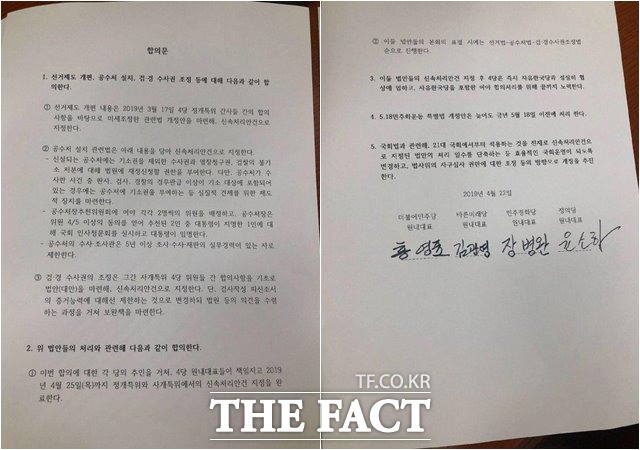 합의문
1. 선거제도 개편, 공수처 설치, 검·경 수사권 조정 등에 대해 다음과 같이 합
의한다.
① 선거제도 개편 내용은 2019년 3월 17일 4당 정개특위 간사들 간의 합의
사항을 바탕으로 미세조정한 관련법 개정안을 마련해, 신속처리안건으로
지정한다.
② 공수처 설치 관련법은 아래 내용을 담아 신속처리안건으로 지정한다.
- 신설되는 공수처에는 기소권을 제외한 수사권과 영장청구권, 검찰의 불기
소 처분에 대해 법원에 재정신청할 권한을 부여한다. 다만, 공수처가 수
사한 사건 중 판사, 검사, 경찰의 경무관급 이상이 기소 대상에 포함되어
있는 경우에는 공수처에 기소권을 부여하는 등 실질적 견제를 위한 제도
적 장치를 마련한다.
- 공수처장추천위원회에 여야 각각 2명씩의 위원을 배정하고, 공수처장은
위원 4/5 이상의 동의를 얻어 추천된 2인 중 대통령이 지명한 1인에 대
해 국회 인사청문회를 실시하고 대통령이 임명한다.
- 공수처의 수사·조사관은 5년 이상 조사·수사·재판의 실무경력이 있는 자로
제한한다.
③ 검·경 수사권의 조정은 그간 사개특위 4당 위원들 간 합의사항을 기초로
법안(대안)을 마련해, 신속처리안건으로 지정한다. 단, 검사작성 피신조서
의 증거능력에 대해선 제한하는 것으로 변경하되 법원 등의 의견을 수렴
하는 과정을 거쳐 보완책을 마련한다.
2. 위 법안들의 처리와 관련해 다음과 같이 합의한다.
① 이번 합의에 대한 각 당의 추인을 거쳐, 4당 원내대표들이 책임지고 2019
년 4월 25일(목)까지 정개특위와 사개특위에서의 신속처리안건 지정을 완
료한다.
② 이들 법안들의 본회의 표결 시에는 선거법-공수처법-검·경수사권조정법
순으로 진행한다.
3. 이들 법안들의 신속처리안건 지정 후 4당은 즉시 자유한국당과 성실히 협
상에 임하고, 자유한국당을 포함한 여야 합의처리를 위해 끝까지 노력한다.
4. 5.18민주화운동 특별법 개정안은 늦어도 금년 5월 18일 이전에 처리 한다.
5. 국회법과 관련해, 21대 국회에서부터 적용하는 것을 전제로 신속처리안건으
로 지정된 법안의 처리 일수를 단축하는 등 효율적인 국회운영이 되도록
변경하고, 법사위의 자구심사 권한에 대한 조정 등의 방향으로 개정을 추진
한다.
2019년 4월 22일
더불어민주당 바른미래당 민주평화당 정의당
원내대표 원내대표 원내대표 원내대표
홍영표 김관영 장병완 윤소하
TF.CO.KR
THE FACT